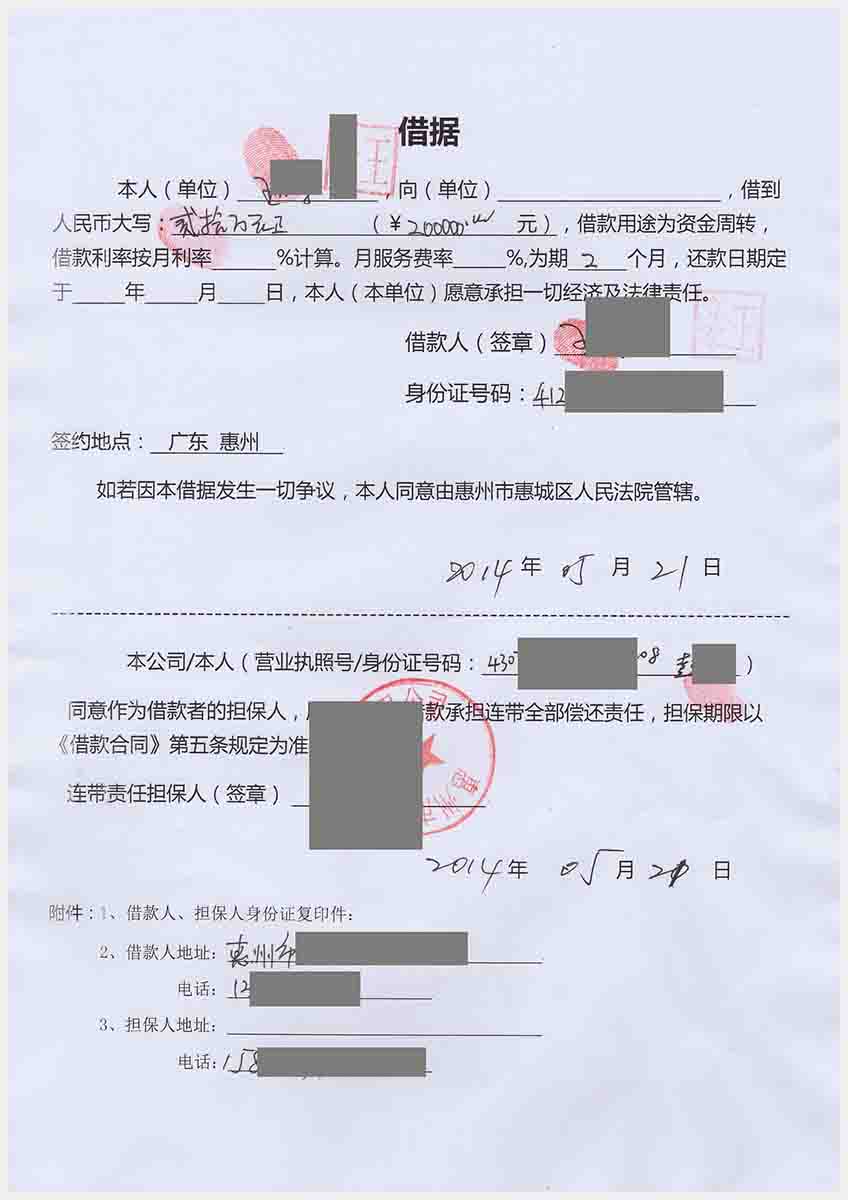 借据
本人（单位），向（单位），借到
人民币大写：贰拾万元正（￥200000.00元），借款用途为资金周转，
借款利率按月利率%计算。月服务费率%,为期2个月，还款日期定
于年月日，本人（本单位）愿意承担一切经济及法律责任。
借款人（签章）
身份证号码：412
签约地点：广东 惠州
如若因本借据发生一切争议，本人同意由惠州市惠城区人民法院管辖。
2014年05月21日
本公司/本人（营业执照号/身份证号码：430 08）
同意作为借款者的担保人，款承担连带全部偿还责任，担保期限以
《借款合同》第五条规定为准
连带责任担保人（签章）
惠州
2014年05月21日
附件：1、借款人、担保人身份证复印件：
2、借款人地址：惠州市
电话：12
3、担保人地址：
电话：158